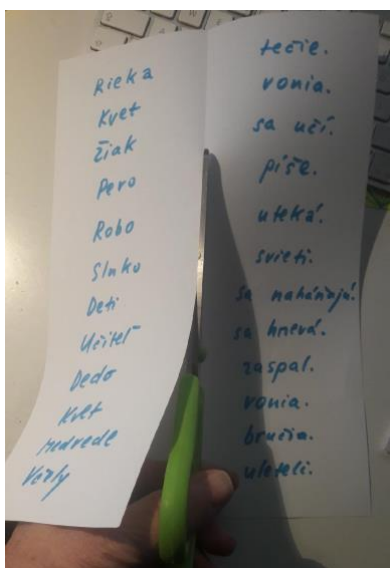 Rieka
Kvet
Žiak
Pero
Robo
Slnko
Deti
Učiteľ
Dedo
Kvet
Medvede
Včely
tečie.
vonia.
sa učí.
píše.
uteká.
svieti.
sa naháňajú.
sa hnevá.
zaspal.
vonia.
bručia.
uleteli.